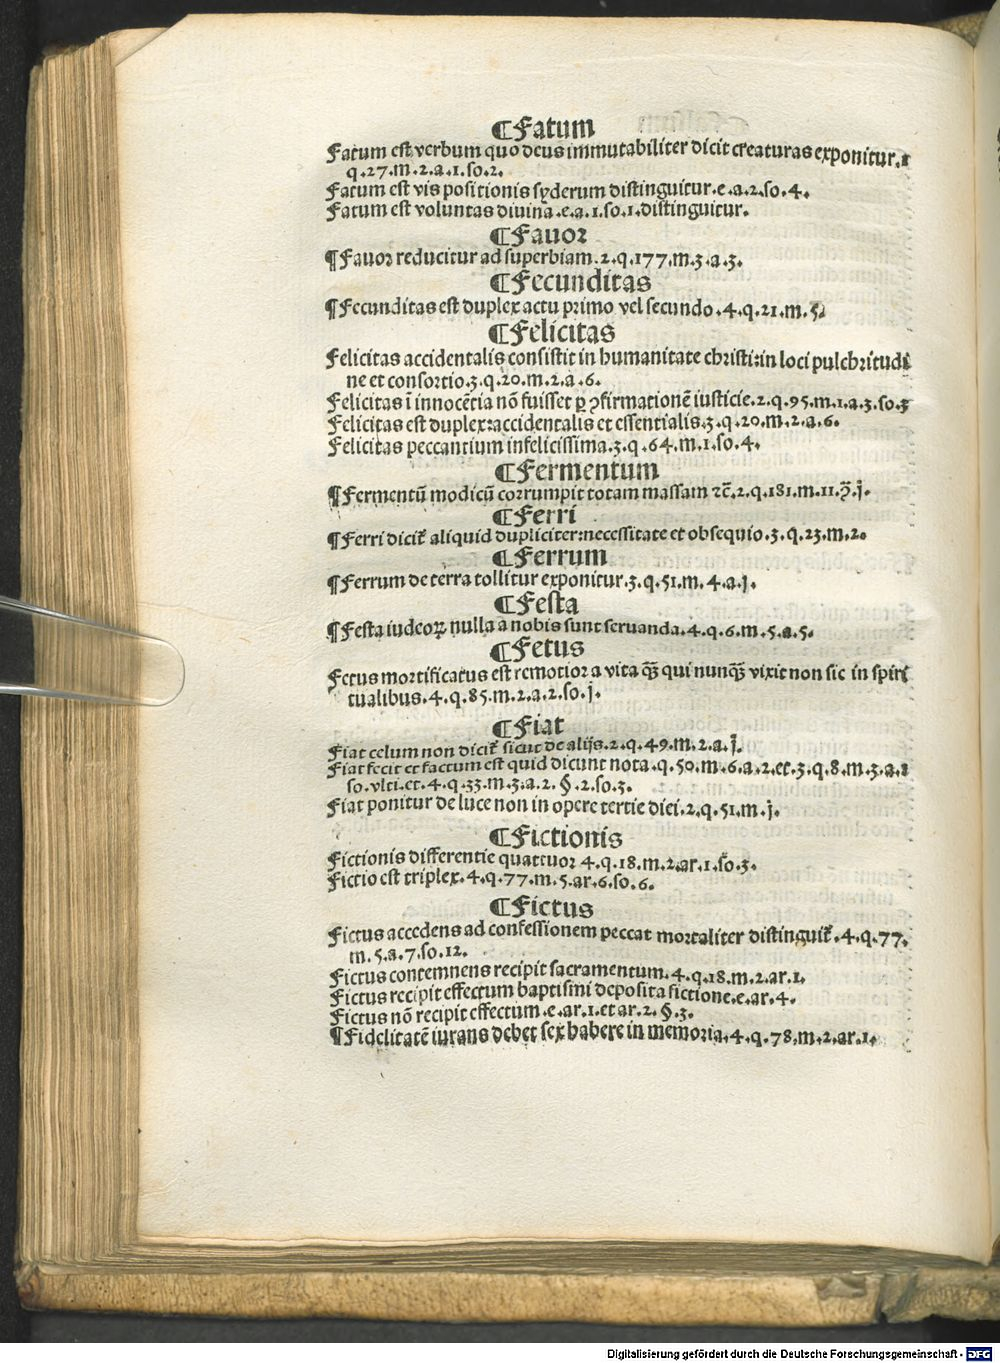 ¶Fatum
Fatum est verbum quo deus immutabiliter dicit creaturas exponitur.1
q.27.m.2.a.1.so.2.
Fatum est vis positionis syderum distinguitur.e.a.2.so.4.
Fatum est voluntas diuina.e.a.1.so.1.distinguitur.
¶Fauor
¶Fauor reducitur ad superbiam.2.q.177.m.3.a.3.
¶Fecunditas
¶Fecunditas est duplex actu primo vel secundo.4.q.21.m.5.
¶Felicitas
Felicitas accidentalis consistit in humanitate christi:in loci pulchritudi
ne et consortio.3.q.20.m.2.a.6.
Felicitas ī innocētia nō fuisset ꝑ ꝯfirmationē iusticie.2.q.95.m.1.a.3.so.3
Felicitas est duplex:accidentalis et essentialis.3.q.20.m.2.a.6.
Felicitas peccantium infelicissima.3.q.64.m.1.so.4.
¶Fermentum
¶Fermentū modicū corrumpit totam massam ⁊c̄.2.q.181.m.11.ꝯ̄.j.
¶Ferri
¶Ferri dicit̄ aliquid dupliciter:necessitate et obsequio.3.q.23.m.2.
¶Ferrum
¶Ferrum de terra tollitur exponitur.3.q.51.m.4.a.j.
¶Festa
¶Festa iudeoꝝ nulla a nobis sunt seruanda.4.q.6.m.5.a.5.
¶Fetus
Fetus mortificatus est remotior a vita q̄ꝫ qui nunq̄ꝫ vixit non sic in spiri
tualibus.4.q.85.m.2.a.2.so.j.
¶Fiat
Fiat celum non dicit̄ sicut de alijs.2.q.49.m.2.a.j.
Fiat fecit et factum est quid dicunt nota.q.50.m.6.a.2.et.3.q.8.m.3.a.1
so.vlti.et.4.q.33.m.3.a.2.§.2.so.3.
Fiat ponitur de luce non in opere tertie diei.2.q.51.m.j.
¶Fictionis
Fictionis differentie quattuor 4.q.18.m.2.ar.1.so.3.
Fictio est triplex.4.q.77.m.5.ar.6.so.6.
¶Fictus
Fictus accedens ad confessionem peccat mortaliter distinguit̄.4.q.77.
m.5.a.7.so.12.
Fictus contemnens recipit sacramentum.4.q.18.m.2.ar.1.
Fictus recipit effectum baptismi deposita fictione.e.ar.4.
Fictus nō recipit effectum.e.ar.1.et ar.2.§.3.
¶Fidelitatē iurans debet sex habere in memoria.4.q.78.m.2.ar.1.
Digitalisierung gefördert durch die Deutsche Forschungsgemeinschaft - DFG